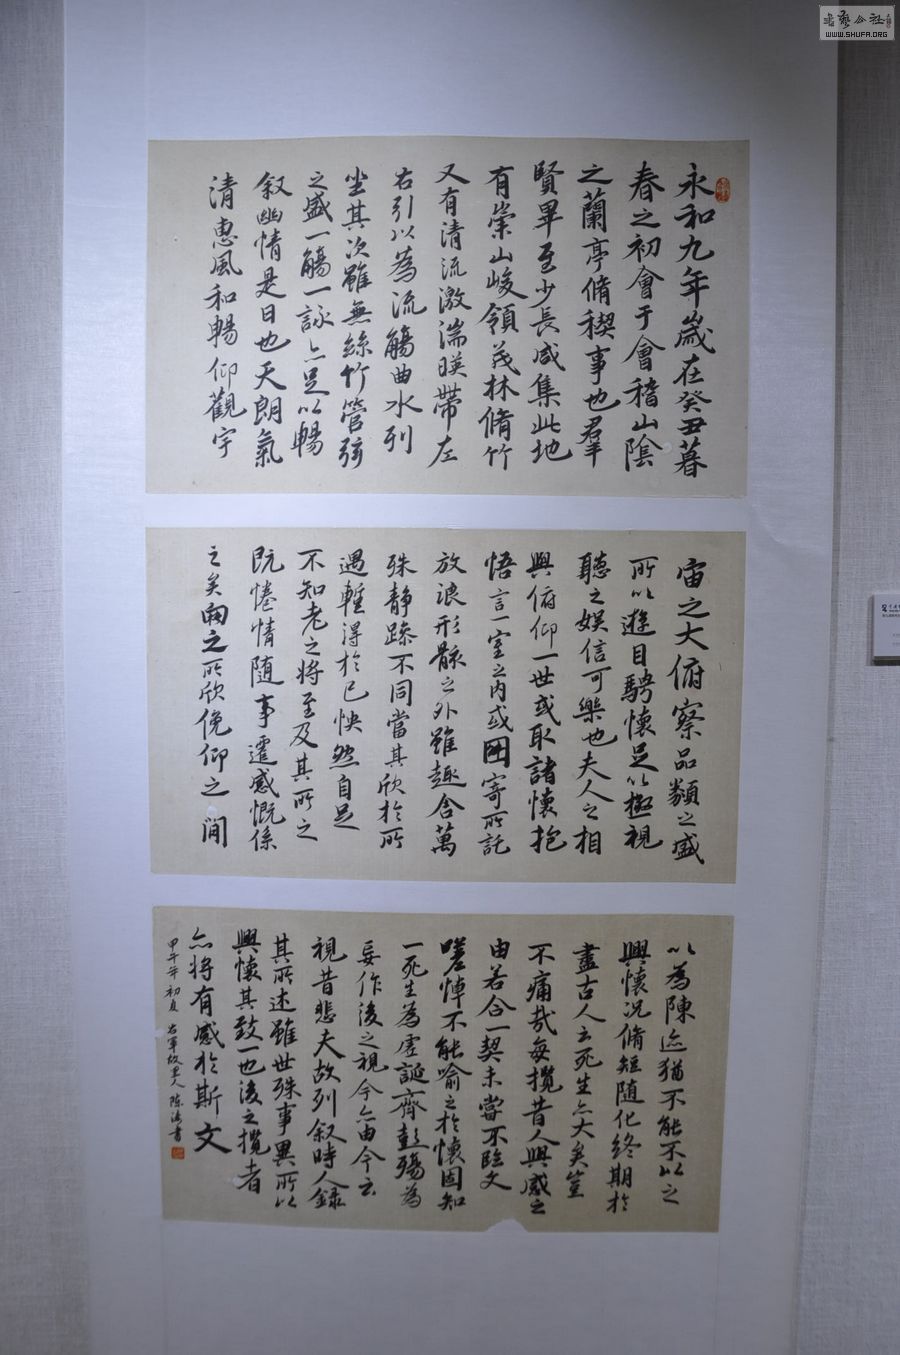 永和九年歲在癸丑暮
春之初會于會稽山陰
之蘭亭脩稧事也羣
賢畢至少長咸集此地
有崇山峻領茂林脩竹
又有清流激湍暎帶左
右引以為流觴曲水列
坐其次雖無絲竹管弦
之盛一觴一詠亦足以暢
敘幽情是日也天朗氣
清惠風和暢仰觀宇
宙之大俯察品類之盛
所以遊目騁懷足以極視
聽之娛信可樂也夫人之相
與俯仰一世或取諸懷抱
悟言一室之內或因寄所託
放浪形骸之外雖趣舍萬
殊靜躁不同當其欣於所
遇暫得於己怏然自足
不知老之將至及其所之
既惓情隨事遷感慨係
之矣向之所欣俛仰之間
以為陳迹猶不能不以之
興懷況脩短隨化終期於
盡古人云死生亦大矣豈
不痛哉每攬昔人興感之
由若合一契未嘗不臨文
嗟悼不能喻之於懷固知
一死生為虛誕齊彭殤為
妄作後之視今亦由今之
視昔悲夫故列敘時人錄
其所述雖世殊事異所以
興懷其致一也後之攬者
亦將有感於斯文
甲午年初夏右軍故里人陳書
WWW.SHUFA.ORG